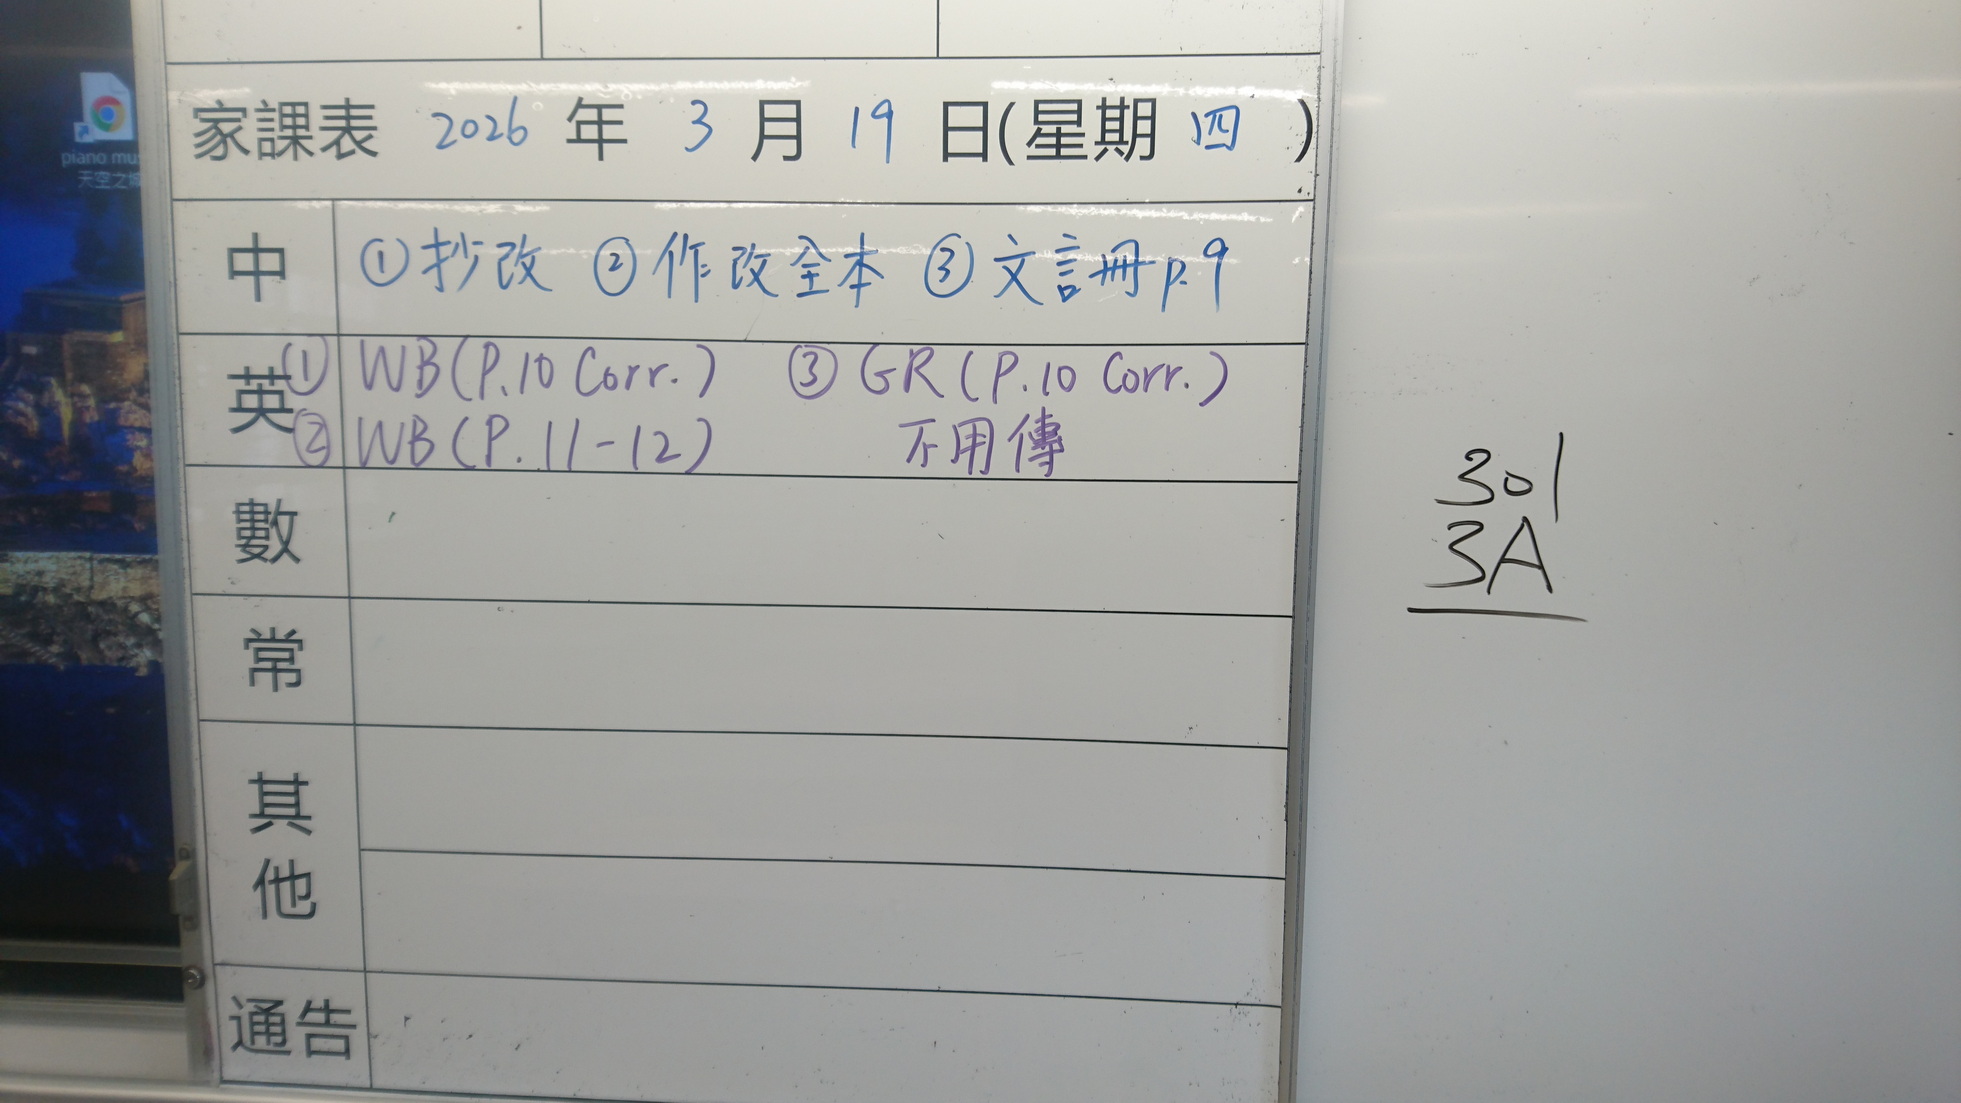 piano mu
天空之城
家課表 2026 年 3 月 19 日(星期 四 )
中 ①抄改 ②作改全本 ③文言冊 p.9
英 ① WB(P.10 Corr.) ③ GR(P.10 Corr.)
② WB(P.11-12) 不用傳
數
常
其他
通告
301
3A